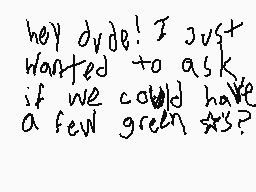 hey dude! I just
wanted to ask
if we could have
a few green ☆'s?